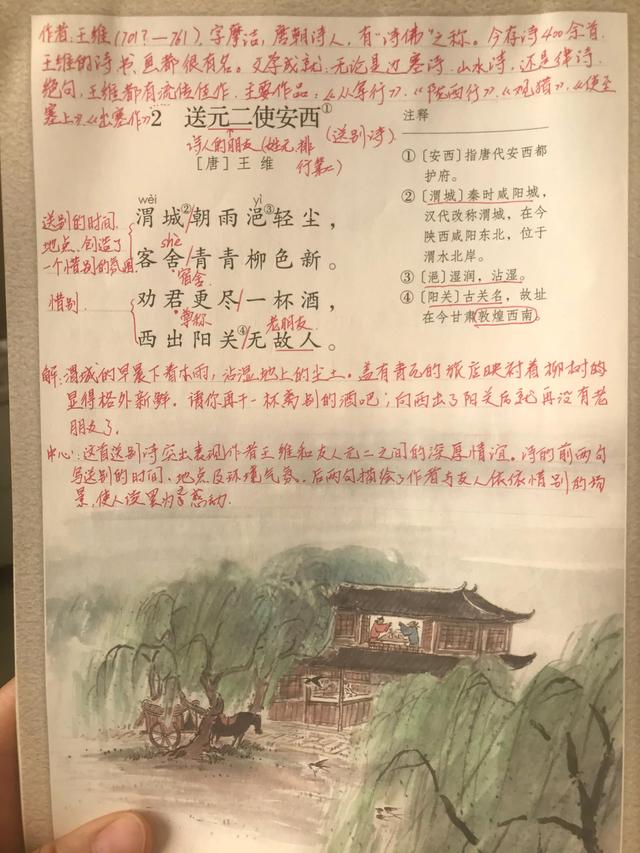 作者:王维(701?—761),字摩诘,唐朝诗人,有"诗佛"之称。今存诗400余首,
王维的诗书、画都很有名。文学成就:无论是边塞诗、山水诗,还是律诗、
绝句,王维都有流传佳作。主要作品:《从军行》、《陇西行》、《观猎》、《使至
塞上》、《出塞作》
2 送元二使安西①
(送别诗)
诗人的朋友(姓元,排
行第二)
[唐]王 维
wèi yì
渭城②/朝雨浥③轻尘,
shè
客舍/青青柳色新。
宿舍
劝君更尽/一杯酒,
尊称 老朋友
西出阳关④/无故人。
送别的时间、
地点、创造了
一个惜别的氛围
惜别
注释
①[安西]指唐代安西都
护府。
②[渭城]秦时咸阳城,
汉代改称渭城,在今
陕西咸阳东北,位于
渭水北岸。
③[浥]湿润,沾湿。
④[阳关]古关名,故址
在今甘肃敦煌西南。
解:渭城的早晨下着小雨,沾湿地上的尘土。盖有青瓦的旅店映衬着柳树的
显得格外新鲜。请你再干一杯离别的酒吧;向西出了阳关后就再没有老
朋友了。
中心:这首送别诗突出表现作者王维和友人元二之间的深厚情谊。诗的前两句
写送别的时间、地点及环境气氛。后两句描绘了作者与友人依依惜别的场
景,使人读罢为之感动.